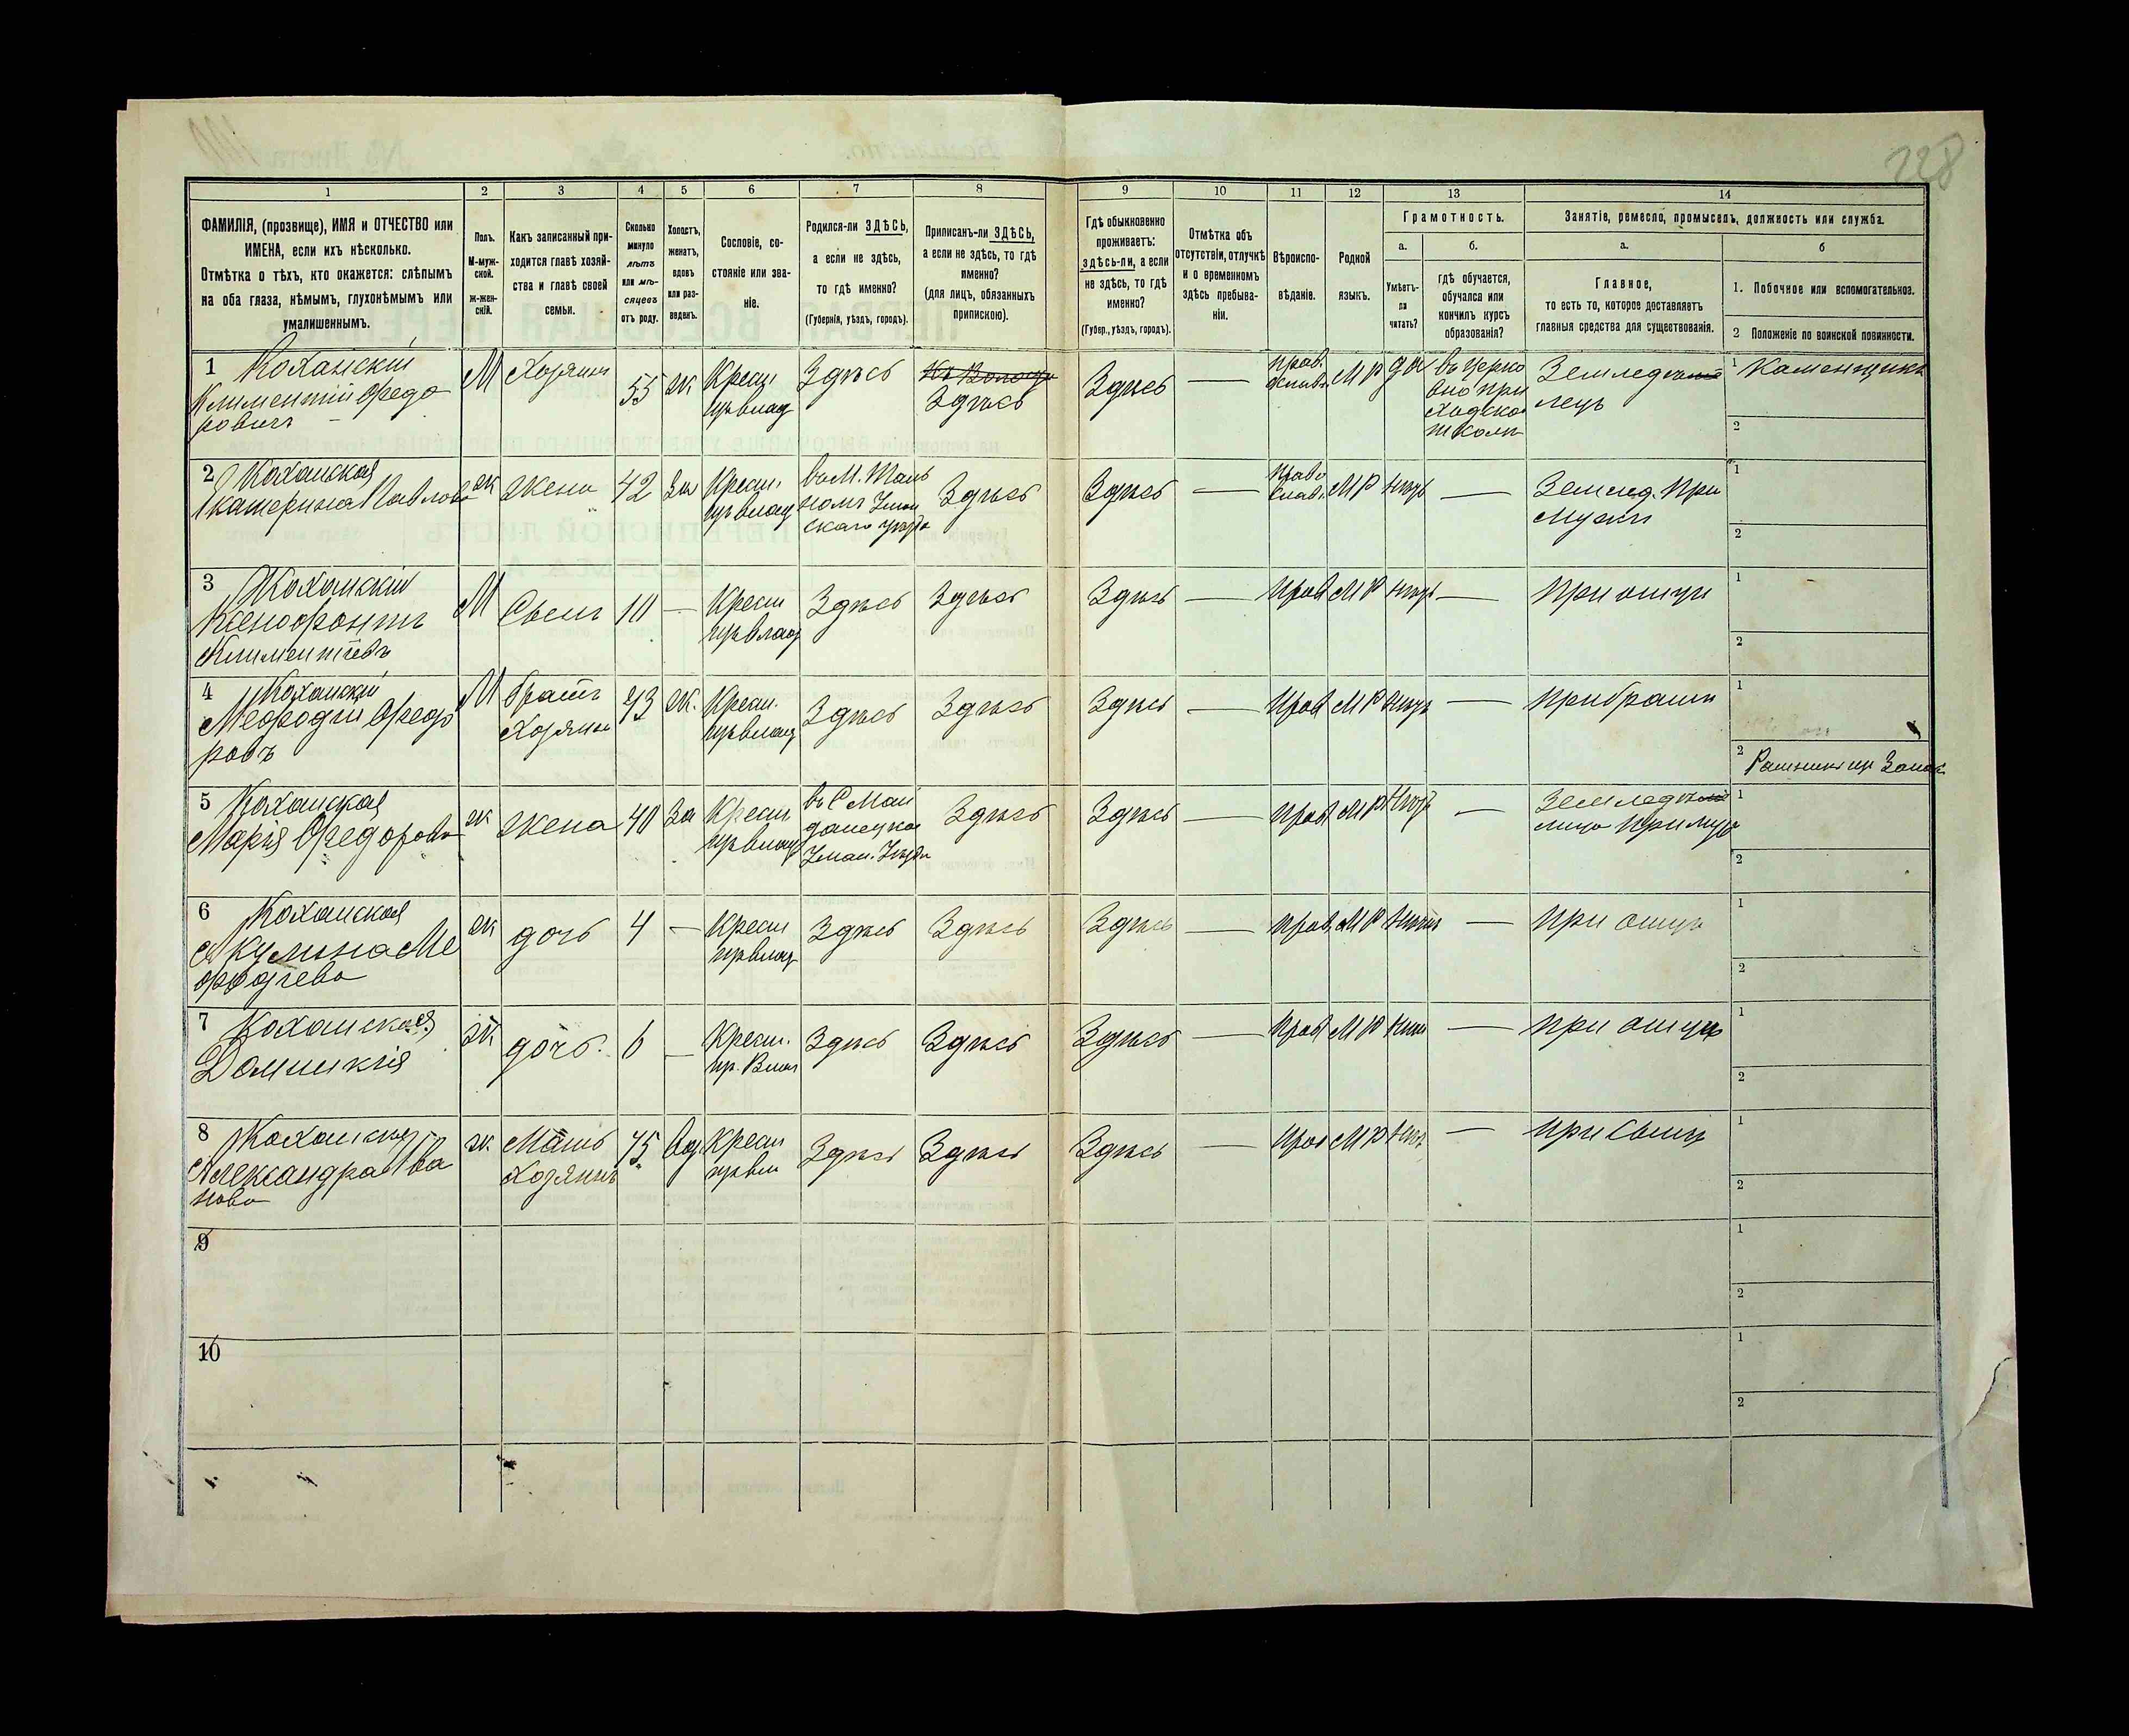 228
1
2
3
4
5
6
7
8
9
10
11
12
13
14
ФАМИЛІЯ, (прозвище), ИМЯ и ОТЧЕСТВО или
ИМЕНА, если ихъ нѣсколько.
Отмѣтка о тѣхъ, кто окажется: слѣпымъ
на оба глаза, нѣмымъ, глухонѣмымъ или
умалишеннымъ.
Полъ.
М-муж-
ской.
ж-жен-
скій.
Какъ записанный при-
ходится главѣ хозяй-
ства и главѣ своей
семьи.
Сколько
минуло
лѣтъ
или мѣ-
сяцевъ
отъ роду.
Холостъ,
женатъ,
вдовъ
или раз-
веденъ.
Сословіе, со-
стояніе или зва-
ніе.
Родился-ли ЗДѢСЬ,
а если не здѣсь,
то гдѣ именно?
(Губернія, уѣздъ, городъ).
Приписанъ-ли ЗДѢСЬ,
а если не здѣсь, то гдѣ
именно?
(для лицъ, обязанныхъ
припискою).
Гдѣ обыкновенно
проживаетъ:
здѣсь-ли, а если
не здѣсь, то гдѣ
именно?
(Губер., уѣздъ, городъ).
Отмѣтка объ
отсутствіи, отлучкѣ
и о временномъ
здѣсь пребыва-
ніи.
Вѣроиспо-
вѣданіе.
Родной
языкъ.
Грамотность.
а.
Умѣетъ-
ли
читать?
б.
гдѣ обучается,
обучался или
кончилъ курсъ
образованія?
Занятіе, ремесло, промыселъ, должность или служба.
а.
Главное,
то есть то, которое доставляетъ
главныя средства для существованія.
б
1. Побочное или вспомогательное.
2 Положеніе по воинской повинности.
1 Коханскій
Климентій Федо
ровичъ
М
Хозяинъ
55
ж
Крест
изъ влад
Здѣсь
Здѣсь
Здѣсь
—
Прав.
М Р
да
въ Церко
вно при
ходско
школѣ
Землед
лецъ
1 Каменщикъ
2
2 Коханская
Екатерина Павлова
ж
жена
42
За
Крест.
изъ влад
въ М. Таль
номъ Уман
скаго уѣзда
Здѣсь
Здѣсь
—
Право
слав.
М Р
нѣтъ
—
Землед. при
мужѣ
1
2
3 Коханскій
Ксенофонтъ
Климентіевъ
М
Сынъ
10
—
Крест
изъ влад
Здѣсь
Здѣсь
Здѣсь
—
Прав
М Р
нѣтъ
—
при отцѣ
1
2
4 Коханскій
Мефодій Федо
ровъ
М
братъ
Хозяина
43
ж.
Крест.
изъ влад
Здѣсь
Здѣсь
Здѣсь
—
Прав
М Р
нѣтъ
—
при братѣ
1
2 Ратникъ
5 Коханская
Марія Федорова
ж
жена
40
За
Крест
изъ влад
въ С Май
данецко
Уман. Уѣзда
Здѣсь
Здѣсь
—
Прав
М Р
нѣтъ
—
Земледѣ
лица при мужѣ
1
2
6 Коханская
Акулина Ме
фодіева
ж
дочь
4
—
Крест
изъ влад
Здѣсь
Здѣсь
Здѣсь
—
Прав
М Р
нѣтъ
—
при отцѣ
1
2
7 Коханская
Домникія
ж
дочь.
6
—
Крест.
Здѣсь
Здѣсь
Здѣсь
—
Прав
М Р
нѣтъ
—
при отцѣ
1
2
8
Александра Ива
нова
ж.
Мать
Хозяина
75
Вд
Крест
изъ вл
Здѣсь
Здѣсь
Здѣсь
—
Прав
М Р
нѣтъ
—
при Сынѣ
1
2
9
1
2
10
1
2